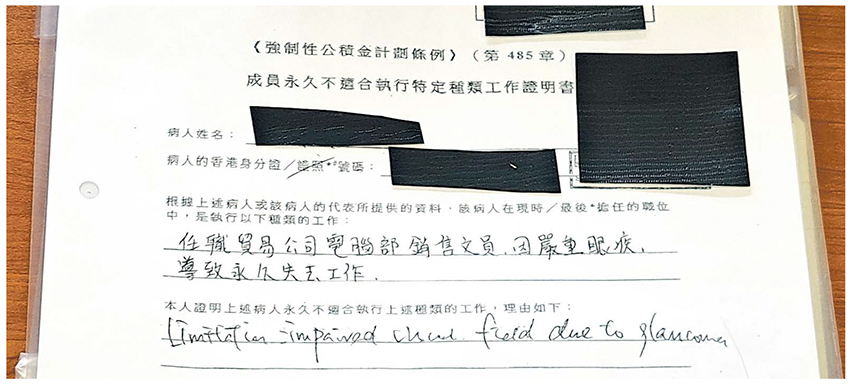 《強制性公積金計劃條例》(第 485 章)
成員永久不適合執行特定種類工作證明書
病人姓名：
病人的香港身分證／護照*號碼：
根據上述病人或該病人的代表所提供的資料，該病人在現時／最後*擔任的職位
中，是執行以下種類的工作：
任職貿易公司電腦部銷售文員，因嚴重眼疾，
導致永久失去工作．
本人證明上述病人永久不適合執行上述種類的工作，理由如下：
impaired visual field due to glaucoma